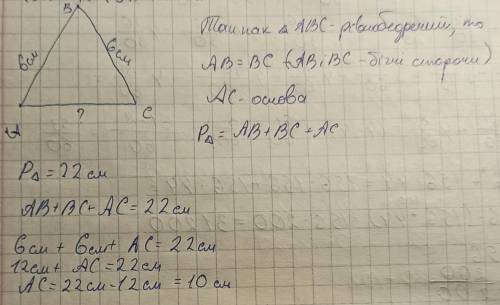 B
6см 6см
A ? C
Так как Δ ABC - рівнобедрений, то
AB = BC (AB i BC - бічні сторони)
AC - основа
PΔ = AB + BC + AC
PΔ = 22 см
AB + BC + AC = 22 см
6 см + 6 см + AC = 22 см
12 см + AC = 22 см
AC = 22 см - 12 см = 10 см